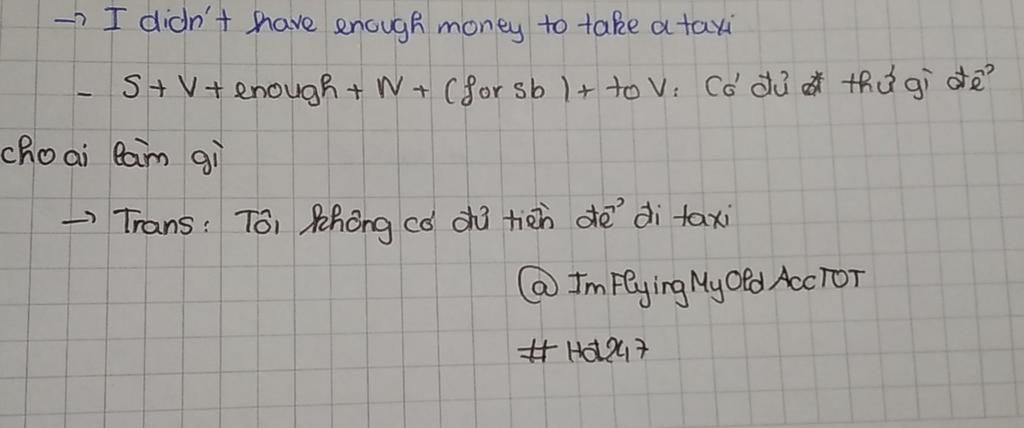 → I didn't have enough money to take a taxi
- S + V + enough + N + (for sb) + to V: Có đủ thứ gì để
cho ai làm gì
→ Trans: Tôi không có đủ tiền để đi taxi
@ImFlyingMyOldAccTOT